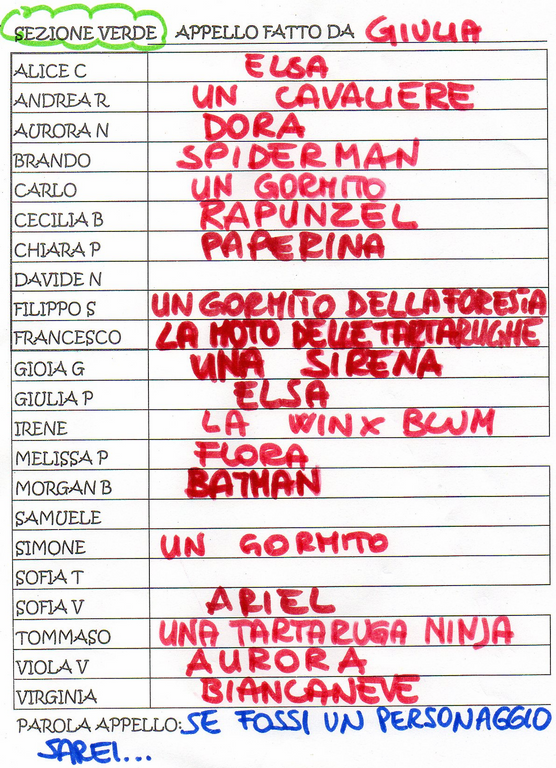 SEZIONE VERDE APPELLO FATTO DA GIULIA
ALICE C ELSA
ANDREA R UN CAVALIERE
AURORA N DORA
BRANDO SPIDERMAN
CARLO UN GORMITO
CECILIA B RAPUNZEL
CHIARA P PAPERINA
DAVIDE N
FILIPPO S UN GORMITO DELLA FORESTA
FRANCESCO LA MOTO DELLE TARTARUGHE
GIOIA G UNA SIRENA
GIULIA P ELSA
IRENE LA WINX BLUM
MELISSA P FLORA
MORGAN B BATMAN
SAMUELE
SIMONE UN GORMITO
SOFIA T
SOFIA V ARIEL
TOMMASO UNA TARTARUGA NINJA
VIOLA V AURORA
VIRGINIA BIANCANEVE
PAROLA APPELLO: SE FOSSI UN PERSONAGGIO
SAREI...